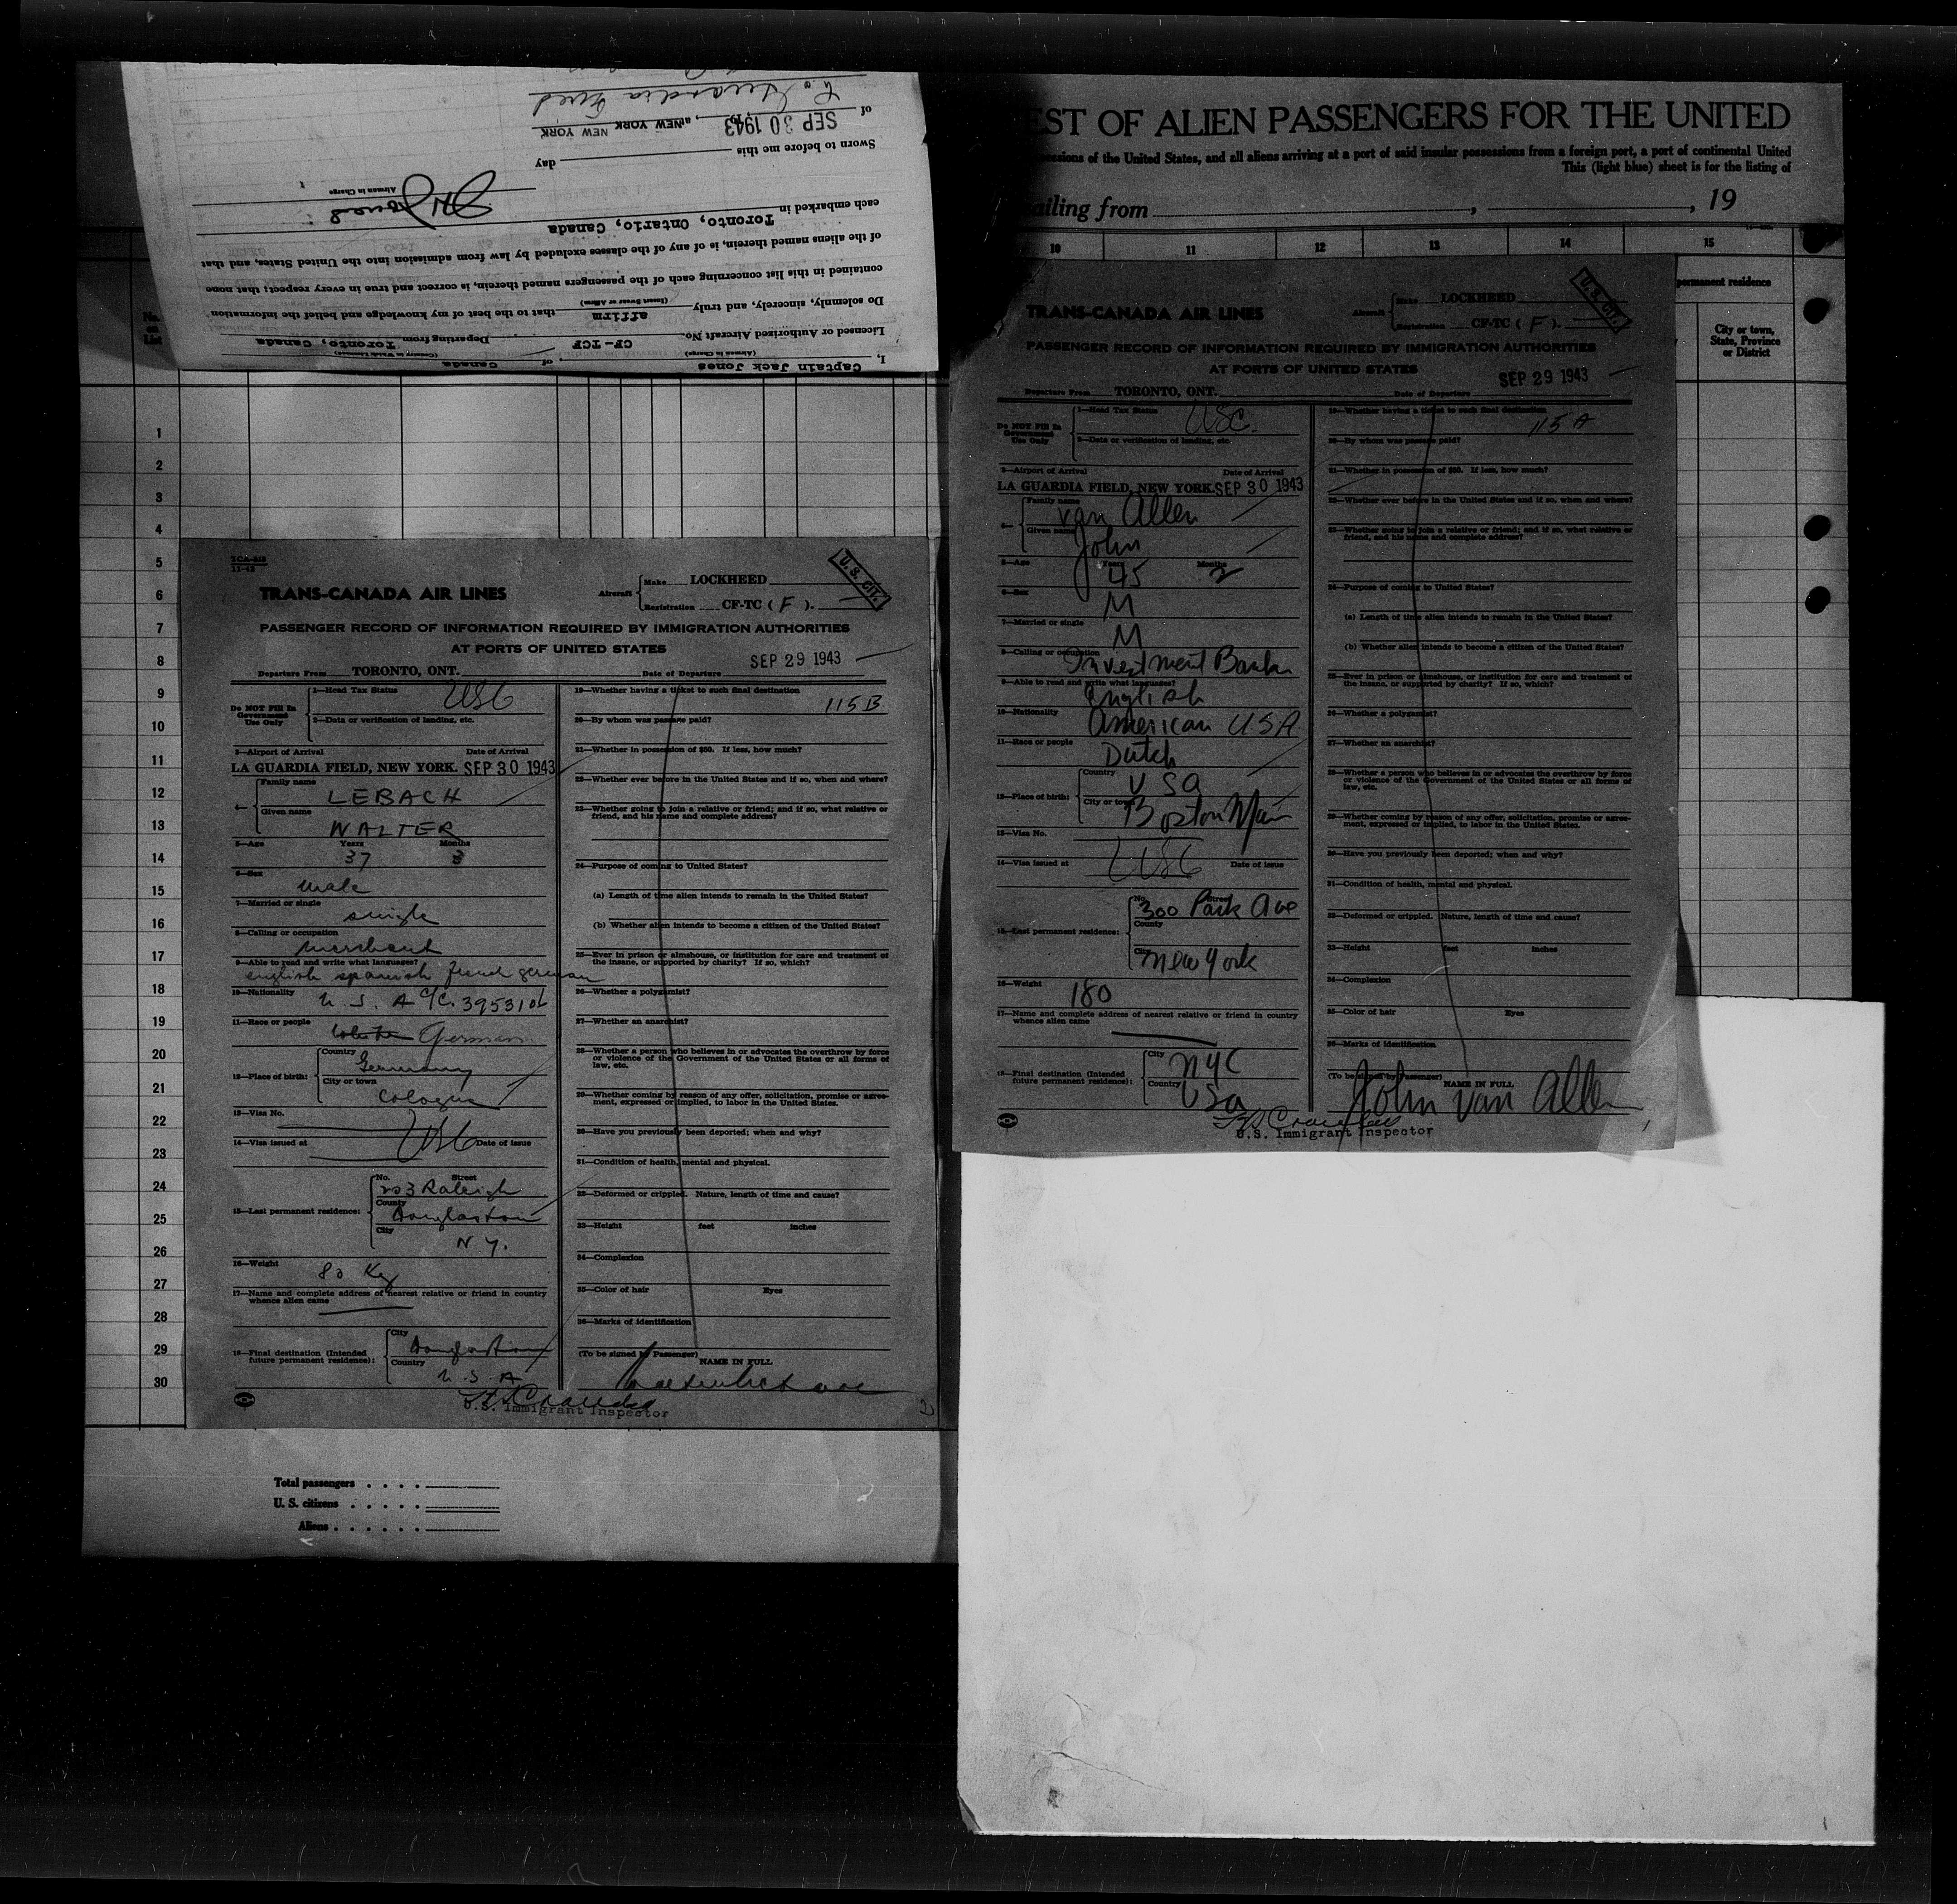 I, Captain Jack Jones, of Canada
(Airman in Charge) (Country in Which Licensed)
Licensed or Authorized Aircraft No. CF-TCF Departing from Toronto, Canada
Do solemnly, sincerely, and truly affirm that to the best of my knowledge and belief the information
(Insert Swear or Affirm)
contained in this list concerning each of the passengers named therein, is correct and true in every respect; that none
of the aliens named therein, is of any of the classes excluded by law from admission into the United States, and that
each embarked in Toronto, Ontario, Canada
Jones
Airman in Charge
Sworn to before me this day
of SEP 30 1943, at NEW YORK NEW YORK
La Guardia Field
EST OF ALIEN PASSENGERS FOR THE UNITED
sessions of the United States, and all aliens arriving at a port of said insular possessions from a foreign port, a port of continental United
This (light blue) sheet is for the listing of
ailing from , , 19
10 11 12 13 14 15
permanent residence
City or town,
State, Province
or District
No.
on
List
1
2
3
4
5
6
7
8
9
10
11
12
13
14
15
16
17
18
19
20
21
22
23
24
25
26
27
28
29
30
11-42
U.S. CIT.
TRANS-CANADA AIR LINES
Aircraft Make LOCKHEED
Registration CF-TC ( F ).
PASSENGER RECORD OF INFORMATION REQUIRED BY IMMIGRATION AUTHORITIES
AT PORTS OF UNITED STATES
Departure From TORONTO, ONT. Date of Departure SEP 29 1943
Do NOT Fill In
Government
Use Only
1—Head Tax Status USC
2—Data or verification of landing, etc.
3—Airport of Arrival Date of Arrival
LA GUARDIA FIELD, NEW YORK. SEP 30 1943
4— Family name LEBACH
Given name WALTER
5—Age Years 37 Months 3
6—Sex male
7—Married or single single
8—Calling or occupation merchant
9—Able to read and write what languages?
english spanish french german
10—Nationality U. S. A C/C. 3953106
11—Race or people German
12—Place of birth: Country Germany
City or town Cologne
13—Visa No.
14—Visa issued at USC Date of issue
15—Last permanent residence: No. Street 203 Raleigh
County Douglaston
City N Y.
16—Weight 80 Kg
17—Name and complete address of nearest relative or friend in country
whence alien came
18—Final destination (Intended
future permanent residence): City Douglaston
Country U. S. A
19—Whether having a ticket to such final destination
115 B
20—By whom was passage paid?
21—Whether in possession of $50. If less, how much?
22—Whether ever before in the United States and if so, when and where?
23—Whether going to join a relative or friend; and if so, what relative or
friend, and his name and complete address?
24—Purpose of coming to United States?
(a) Length of time alien intends to remain in the United States?
(b) Whether alien intends to become a citizen of the United States?
25—Ever in prison or almshouse, or institution for care and treatment of
the insane, or supported by charity? If so, which?
26—Whether a polygamist?
27—Whether an anarchist?
28—Whether a person who believes in or advocates the overthrow by force
or violence of the Government of the United States or all forms of
law, etc.
29—Whether coming by reason of any offer, solicitation, promise or agree-
ment, expressed or implied, to labor in the United States.
30—Have you previously been deported; when and why?
31—Condition of health, mental and physical.
32—Deformed or crippled. Nature, length of time and cause?
33—Height feet inches
34—Complexion
35—Color of hair Eyes
36—Marks of identification
(To be signed by Passenger) NAME IN FULL
U.S. Immigrant Inspector
2
Total passengers
U. S. citizens
Aliens
U.S. CIT.
TRANS-CANADA AIR LINES
Aircraft Make LOCKHEED
Registration CF-TC ( F ).
PASSENGER RECORD OF INFORMATION REQUIRED BY IMMIGRATION AUTHORITIES
AT PORTS OF UNITED STATES
Departure From TORONTO, ONT. Date of Departure SEP 29 1943
Do NOT Fill In
Government
Use Only
1—Head Tax Status USC.
2—Data or verification of landing, etc.
3—Airport of Arrival Date of Arrival
LA GUARDIA FIELD, NEW YORK. SEP 30 1943
4— Family name van Allen
Given name John
5—Age Years 45 Months 2
6—Sex M
7—Married or single M
8—Calling or occupation Investment Banker
9—Able to read and write what languages?
English
10—Nationality American USA
11—Race or people Dutch
12—Place of birth: Country USA
City or town Boston Mass
13—Visa No.
14—Visa issued at USC Date of issue
15—Last permanent residence: No. Street 300 Park Ave
County
City New York
16—Weight 180
17—Name and complete address of nearest relative or friend in country
whence alien came
18—Final destination (Intended
future permanent residence): City NYC
Country USA
19—Whether having a ticket to such final destination
115 A
20—By whom was passage paid?
21—Whether in possession of $50. If less, how much?
22—Whether ever before in the United States and if so, when and where?
23—Whether going to join a relative or friend; and if so, what relative or
friend, and his name and complete address?
24—Purpose of coming to United States?
(a) Length of time alien intends to remain in the United States?
(b) Whether alien intends to become a citizen of the United States?
25—Ever in prison or almshouse, or institution for care and treatment of
the insane, or supported by charity? If so, which?
26—Whether a polygamist?
27—Whether an anarchist?
28—Whether a person who believes in or advocates the overthrow by force
or violence of the Government of the United States or all forms of
law, etc.
29—Whether coming by reason of any offer, solicitation, promise or agree-
ment, expressed or implied, to labor in the United States.
30—Have you previously been deported; when and why?
31—Condition of health, mental and physical.
32—Deformed or crippled. Nature, length of time and cause?
33—Height feet inches
34—Complexion
35—Color of hair Eyes
36—Marks of identification
(To be signed by Passenger) NAME IN FULL
John van Allen
U.S. Immigrant Inspector
1